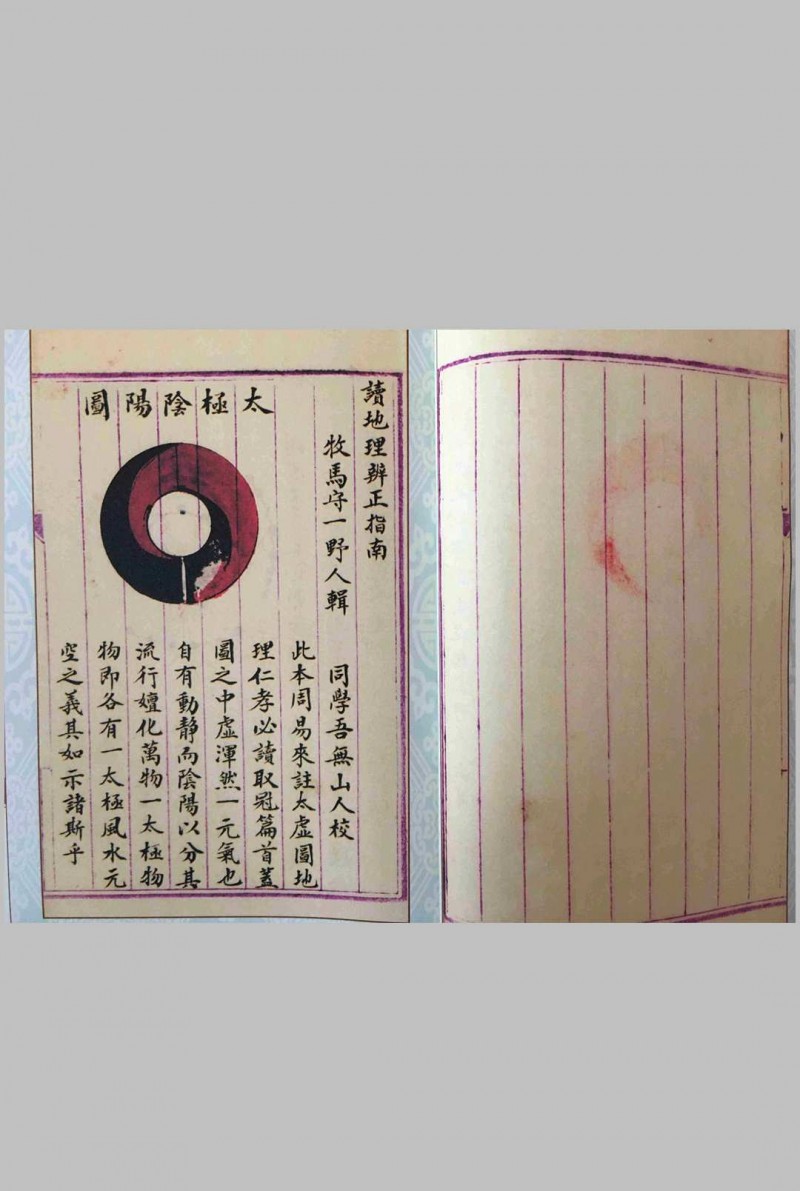 讀地理辨正指南
牧馬守一野人輯 同學吾無山人校
太極陰陽圖
此本周易來註太虛圖地
理仁孝必讀取冠篇首蓋
圖之中虛渾然一元氣也
自有動靜而陰陽以分其
流行嬗化萬物一太極物
物即各有一太極風水元
空之義其如示諸斯乎